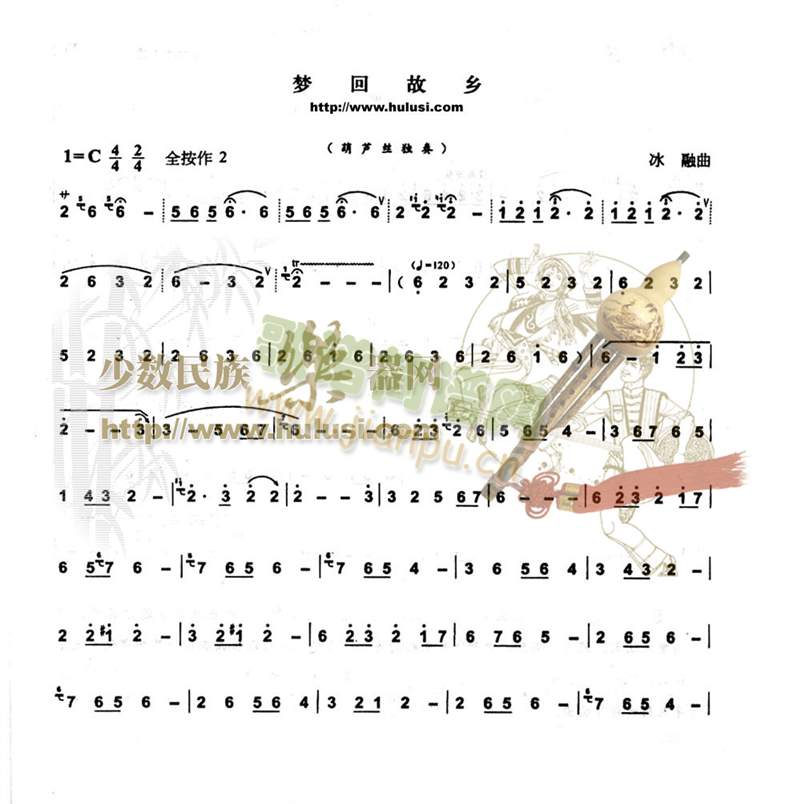 梦回故乡
http://www.hulusi.com
（葫芦丝独奏）
1=C 4/4 2/4 全按作 2 冰 融曲
2 6 6 - | 5 6 5 6 · 6 | 5 6 5 6 · 6 | 2 2 2 - | 1 2 1 2 · 2 | 1 2 1 2 · 2 |
2 6 3 2 | 6 - 3 2 | tr 2 - - - | ( (♩=120) 6 2 3 2 | 5 2 3 2 | 6 2 3 2 |
5 2 3 2 | 6 2 3 6 | 2 6 1 6 | 2 6 3 6 | 2 6 1 6 ) | 6 - 1 2 3 |
2 - - 3 | 3 - 5 6 7 | 6 - - - | 6 2 3 2 6 | 5 6 5 4 - | 3 6 7 6 5 |
1 4 3 2 - | 2 · 3 2 2 | 2 - - 3 | 3 2 5 6 7 | 6 - - - | 6 2 3 2 1 7 |
6 5 7 6 - | 7 6 5 6 - | 7 6 5 7 6 - | 3 6 5 6 4 | 3 4 3 2 - |
2 2 #1 2 - | 3 2 #1 2 - | 6 2 3 2 1 7 | 6 7 6 5 - | 2 2 3 2 1 7 |
7 6 5 6 - | 2 6 5 6 4 | 3 2 1 2 - | 2 6 5 6 - | 7 6 5 6 - |
少数民族 樂 器网
http://www.hulusi.com
歌谱简谱网
www.jianpu.cn